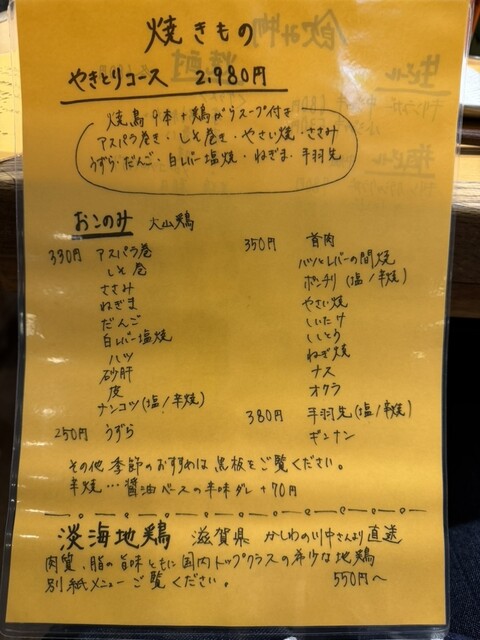 焼きもの
やきとりコース 2,980円
焼鳥9本+鶏がらスープ付き
アスパラ巻き・しそ巻き・やさい焼・ささみ
うずら・だんご・白レバー塩焼・ねぎま・手羽先
おこのみ 大山鶏
330円 アスパラ巻
しそ巻
ささみ
ねぎま
だんご
白レバー塩焼
ハツ
砂肝
皮
ナンコツ(塩/辛焼)
250円 うずら
350円 首肉
ハツとレバーの間焼
ボンチリ(塩/辛焼)
やさい焼
しいたけ
ししとう
ねぎ焼
ナス
オクラ
380円 手羽先(塩/辛焼)
ギンナン
その他季節のおすすめは黒板をご覧ください。
辛焼…醤油ベースの辛味ダレ+70円
淡海地鶏 滋賀県 かしわの川中さんより直送
肉質、脂の旨味ともに国内トップクラスの希少な地鶏
別紙メニューご覧ください。 550円〜